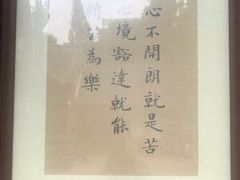 心不開朗就是苦
心境豁達就能
轉苦為樂